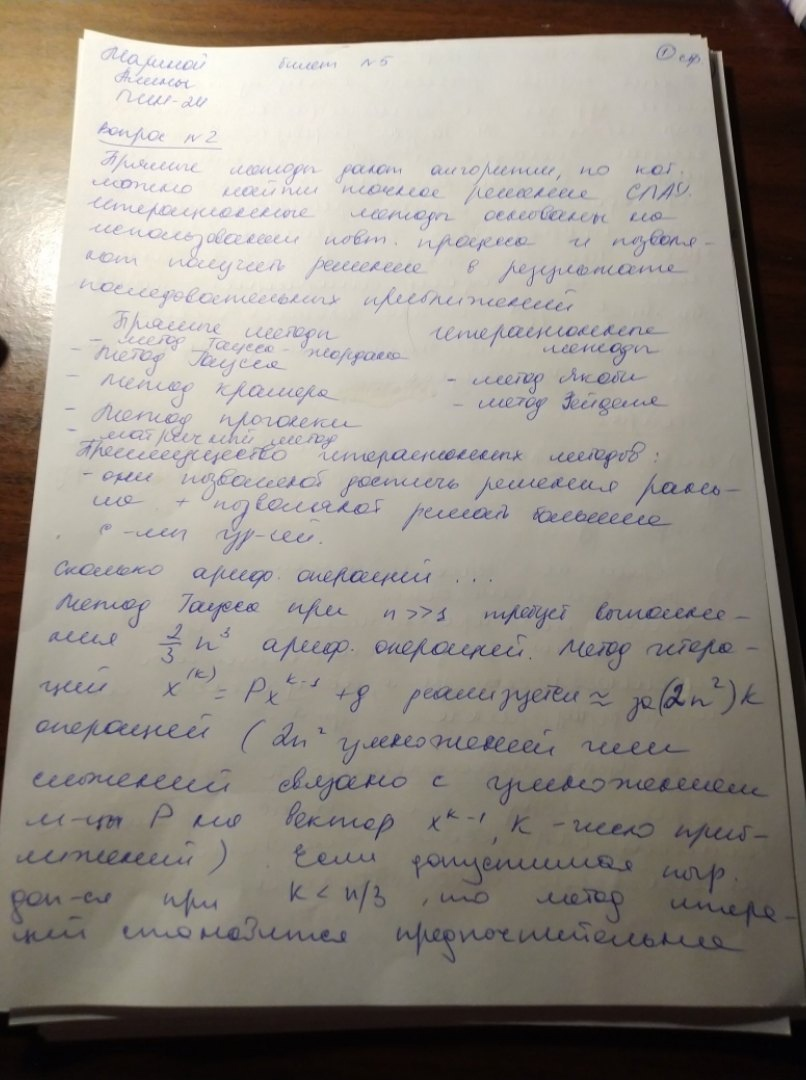 Мариной билет №5 ① стр
Алины
ПИН-24
Вопрос №2
Прямые методы дают алгоритм, по кот.
можно найти точное решение СЛАУ.
Итерационные методы основаны на
использовании повт. процесса и позволя-
ют получить решение в результате
последовательных приближений
Прямые методы
- метод Гаусса-Жордана
- Метод Гаусса
- Метод крамера
- Метод прогонки
- матричный метод
итерационные
методы
- метод Якоби
- метод Зейделя
Преимущество итерационных методов:
- они позволяют достичь решения рань-
ше + позволяют решать большие
с-мы ур-ий.
сколько ариф. операций ...
Метод Гаусса при n>>1 требует выполне-
ния 2/3 n³ ариф. операций. Метод итера-
ций x^(k) = Px^k-1 + g реализуется ≈ за (2n²)k
операций (2n² умножений или
сложений связано с умножением
м-цы P на вектор x^k-1, K - число приб-
лижений) Если допустимая погр.
дос-ся при K < n/3, то метод итера-
ций становится предпочтительнее